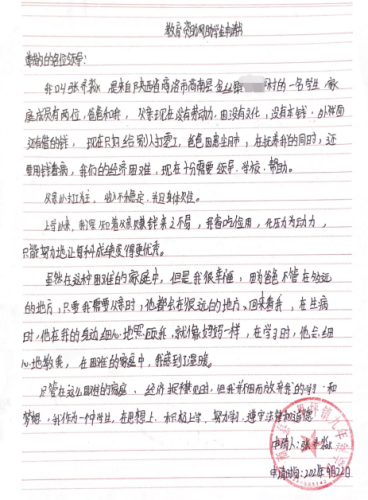 教育资助网助学金申请书
尊敬的各位领导：
我叫张 是来自陕西省商洛市商南县金丝 村的一名学生，家
庭成员有两位，爸爸和我，父亲现在没有劳动力，因没有文化，没有本钱，
现在只好给别人打零工，爸爸因患 中，在抚养我的同时，还
要用钱看病，我们的经济困难，现在十分需要领导、学校、帮助。
父亲以打工为主，收入不稳定，并且身体欠佳。
上学以来，我深知着父亲赚钱来之不易，我省吃俭用，化压力为动力，
只能努力地让每科成绩变得更优秀。
虽然在这种困难的家庭中，但是我很幸福，因为爸爸不管在多远
的地方，只要我需要父亲时，他都会在很远的地方、回来看我，在生病
时，他在我的身边细心地照顾我，就像妈妈一样，在学习时，他会细
心地教我，在困难的家庭中，我感到了温暖。
尽管在这么困难的家庭、经济 ，但我并没有放弃我的学习和
梦想，我作为一个学生，在思想上，积极上学，努力学习，遵守法律和道德
申请人：张
申请时间：202 年9月2 日